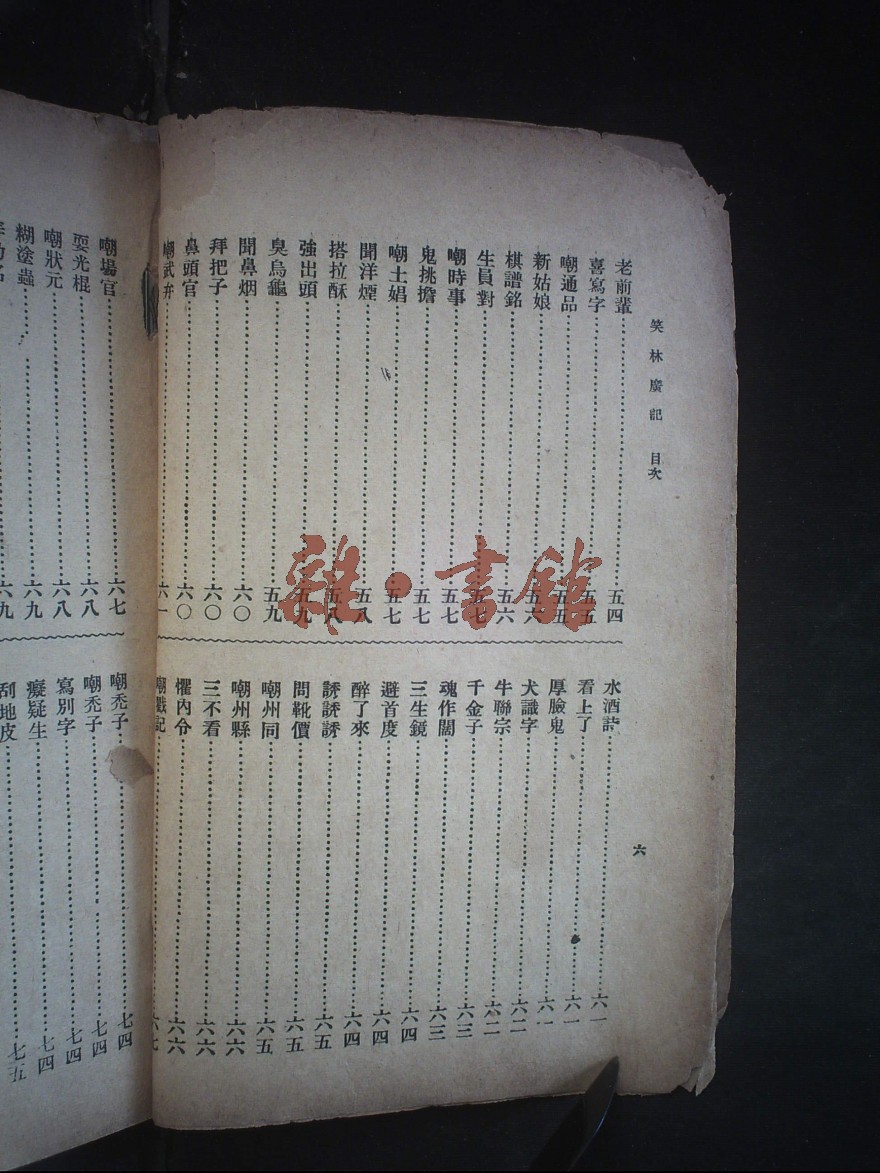 笑林廣記 目次
老前輩 五四
喜寫字 五五
嘲通品 五五
新姑娘 五六
棋譜銘 五六
生員對 五七
嘲時事 五七
鬼挑擔 五七
嘲土娼 五七
聞洋煙 五八
搭拉酥 五八
強出頭 五九
臭烏龜 五九
聞鼻烟 六〇
拜把子 六〇
鼻頭官 六〇
嘲武弁 六一
水酒詩 六一
看上了 六一
厚臉鬼 六一
犬識字 六二
牛聯宗 六二
千金子 六三
魂作闊 六三
三生鏡 六四
避首度 六四
醉了來 六四
謗謗謗 六五
問靴價 六五
嘲州同 六五
嘲州縣 六六
三不看 六六
懼內令 六六
嘲戲記 六七
六
嘲場官 六七
耍光棍 六八
嘲狀元 六八
糊塗蟲 六九
六九
嘲禿子 七四
嘲禿子 七四
寫別字 七四
癡疑生 七四
刮地皮 七五
雜·書館